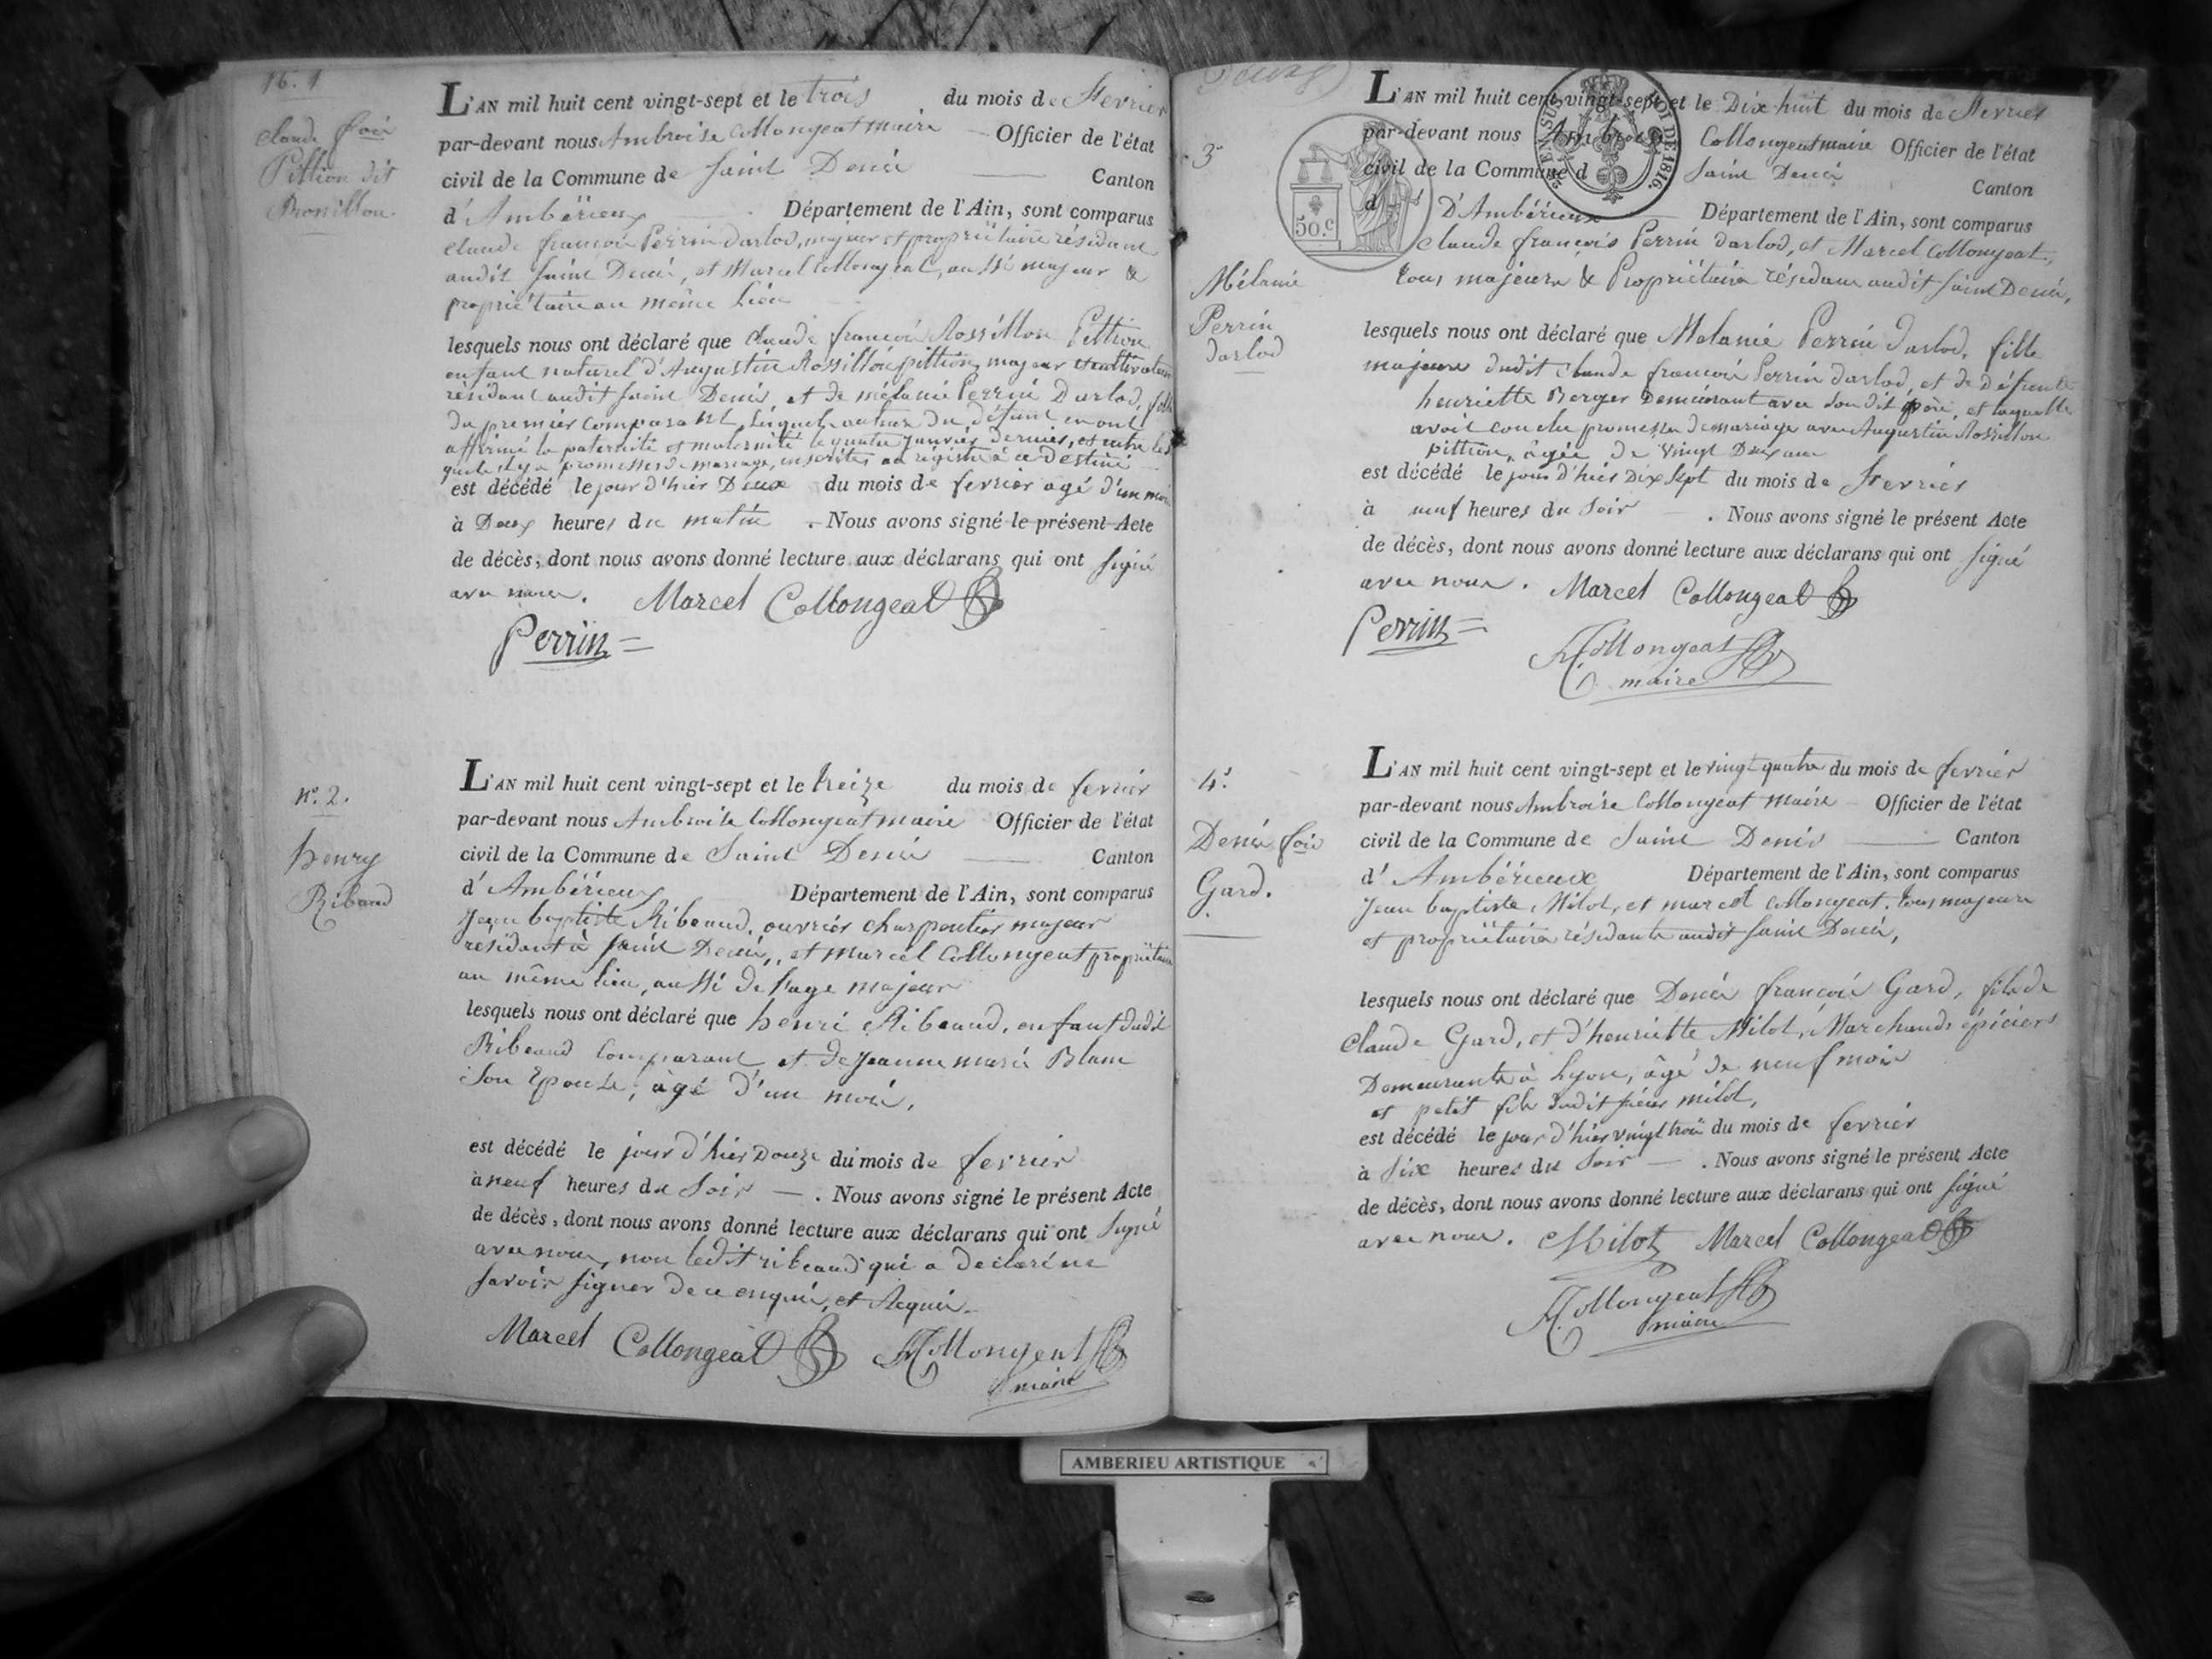 N°. 1
Claude fois
Pittion dit
Rossillon.
L'AN mil huit cent vingt-sept et le trois du mois de fevrier
par-devant nous Ambroise Collongeat maire Officier de l'état
civil de la Commune de Saint Denis Canton
d'Ambérieux Département de l'Ain, sont comparus
Claude françois Perrin darlod, majeur et propriétaire résidant
audit Saint Denis, et Marcel Collongeat, aussi majeur &
propriétaire au même lieu
lesquels nous ont déclaré que Claude françois Rossillon Pittion
enfant naturel d'Augustin Rossillon pittion, majeur et cultivateur
résidant audit saint Denis, et de mélanie Perrin Darlod, fille
du premier comparant, lesquels auteurs du défunt en ont
affirmé la paternité et maternité le quatre janvier dernier, et entre les
quels il y a promesses de mariage, inscrites au régistre à ce destiné
est décédé le jour d'hier Deux du mois de fevrier agé d'un mois
à Deux heures du matin . Nous avons signé le présent Acte
de décès, dont nous avons donné lecture aux déclarans qui ont signé
avec nous. Marcel Collongeat
Perrin
N°. 2.
henry
Ribaud
L'AN mil huit cent vingt-sept et le treize du mois de fevrier
par-devant nous Ambroise Collongeat maire Officier de l'état
civil de la Commune de Saint Denis Canton
d'Ambérieux Département de l'Ain, sont comparus
Jean baptiste Ribeaud, ouvrier charpentier majeur
résidant à Saint Denis, et Marcel Collongeat propriétaire
au même lieu, aussi de l'age majeur
lesquels nous ont déclaré que henri Ribeaud, enfant dudit
Ribeaud Comparant et de Jeanne marie Blanc
Son Epouse, âgé d'un mois,
est décédé le jour d'hier Douze du mois de fevrier
à neuf heures du Soir . Nous avons signé le présent Acte
de décès, dont nous avons donné lecture aux déclarans qui ont signé
avec nous, non ledit ribeaud qui a déclaré ne
savoir signer de ce enquis, et Requis.
Marcel Collongeat A Collongeat
maire
3
Mélanie
Perrin
darlod
L'AN mil huit cent vingt-sept et le Dix huit du mois de fevrier
par-devant nous Ambroise Collongeat maire Officier de l'état
civil de la Commune d Saint Denis Canton
d D'Ambérieux Département de l'Ain, sont comparus
Claude françois Perrin darlod, et Marcel Collongeat,
tous majeurs & Propriétaires résidans audit Saint Denis,
lesquels nous ont déclaré que Melanie Perrin darlod, fille
majeure dudit Claude françois Perrin darlod, et de Défunte
henriette Berger Demeurant avec son dit père, et laquelle
avoit conclu promesse de mariage avec Augustin Rossillon
pittion, âgée de vingt Deux ans
est décédé le jour d'hier Dix sept du mois de fevrier
à neuf heures du Soir . Nous avons signé le présent Acte
de décès, dont nous avons donné lecture aux déclarans qui ont signé
avec nous. Marcel Collongeat
Perrin
A Collongeat
maire
50.C
LOI DE 1816.
4.
Denis fois
Gard.
L'AN mil huit cent vingt-sept et le vingt quatre du mois de fevrier
par-devant nous Ambroise Collongeat maire Officier de l'état
civil de la Commune de Saint Denis Canton
d'Ambérieux Département de l'Ain, sont comparus
Jean baptiste Milot, et marcel collongeat, tous majeurs
et propriétaires résidants audit Saint Denis,
lesquels nous ont déclaré que Denis françois Gard, fils de
Claude Gard, et d'henriette Milot, Marchands épiciers
Demeurants à Lyon, âgé de neuf mois
et petit fils dudit sieur milot,
est décédé le jour d'hier vingt trois du mois de fevrier
à Six heures du Soir . Nous avons signé le présent Acte
de décès, dont nous avons donné lecture aux déclarans qui ont signé
avec nous. Milot Marcel Collongeat
A Collongeat
maire
AMBERIEU ARTISTIQUE